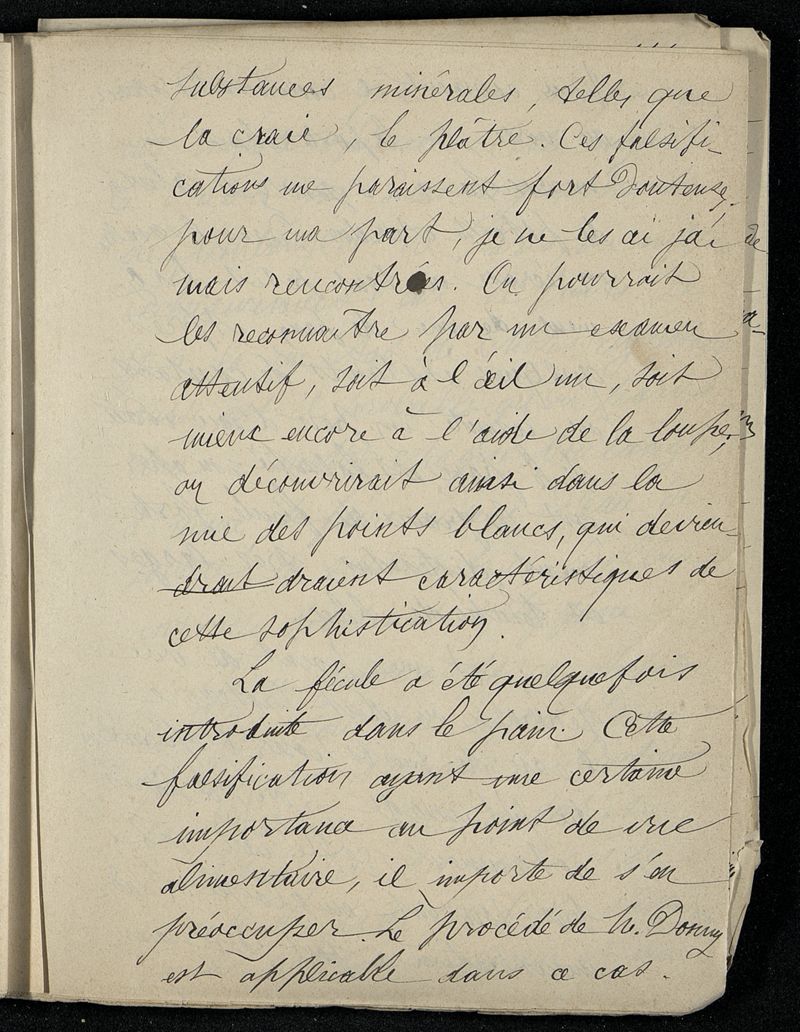 substances minérales, telles que
la craie, le plâtre. Ces falsifi-
cations me paraissent fort douteuses,
pour ma part, je ne les ai ja-
mais rencontrées. On pourrait
les reconnaitre par un examen
attentif, soit à l'œil nu, soit
mieux encore à l'aide de la loupe;
on découvrirait ainsi dans la
mie des points blancs, qui devien-
drait draient caractéristiques de
cette sophistication.
La fécule a été quelquefois
introduite dans le pain. Cette
falsification ayant une certaine
importance au point de vue
alimentaire, il importe de s'en
préoccuper. Le procédé de M. Donny
est applicable dans ce cas.